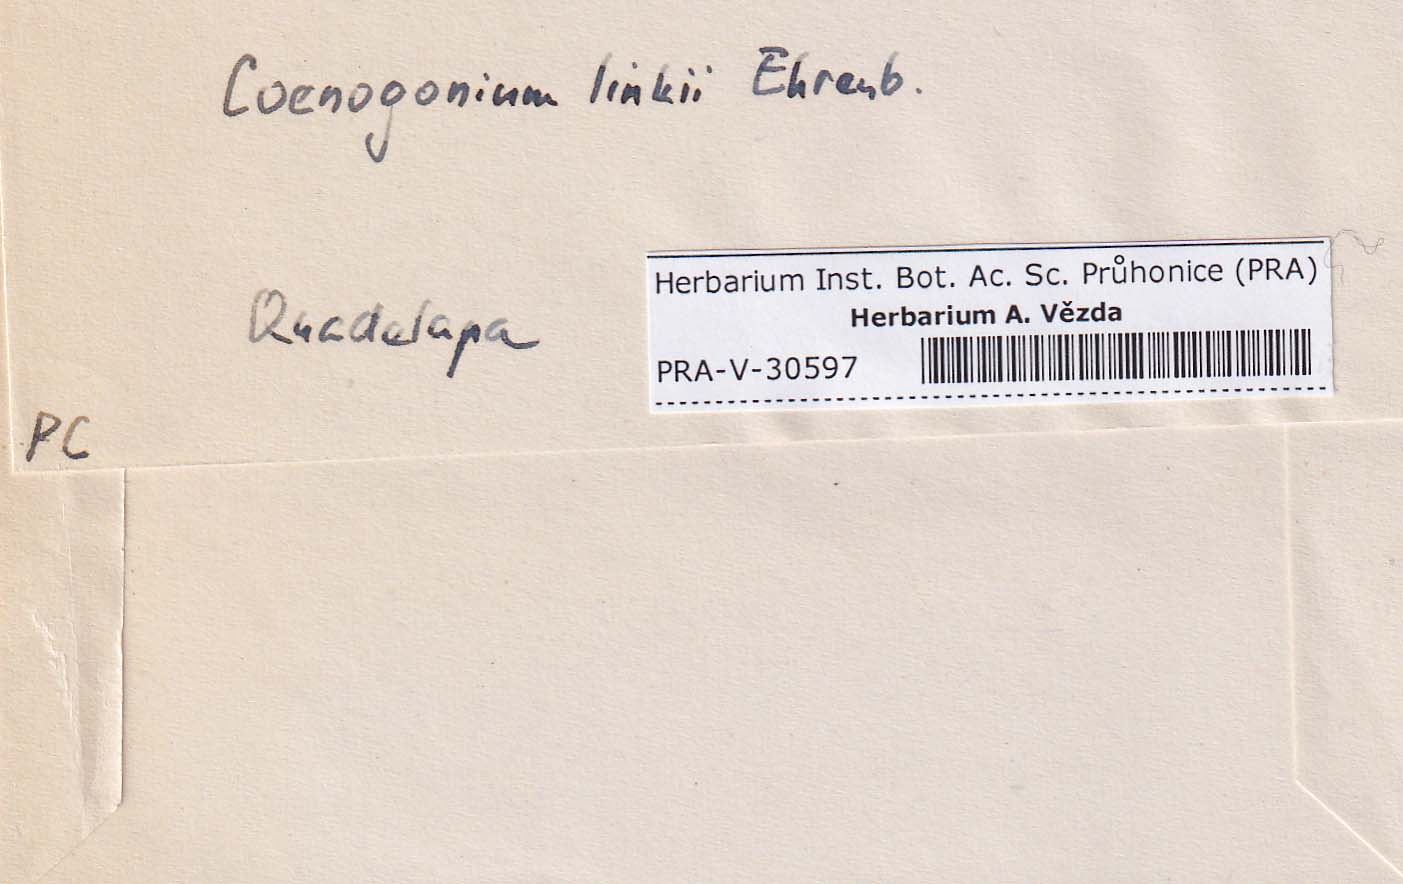 Coenogonium linkii Ehrenb.
Herbarium Inst. Bot. Ac. Sc. Průhonice (PRA)
Herbarium A. Vězda
Quadelupa
PRA-V-30597
PC